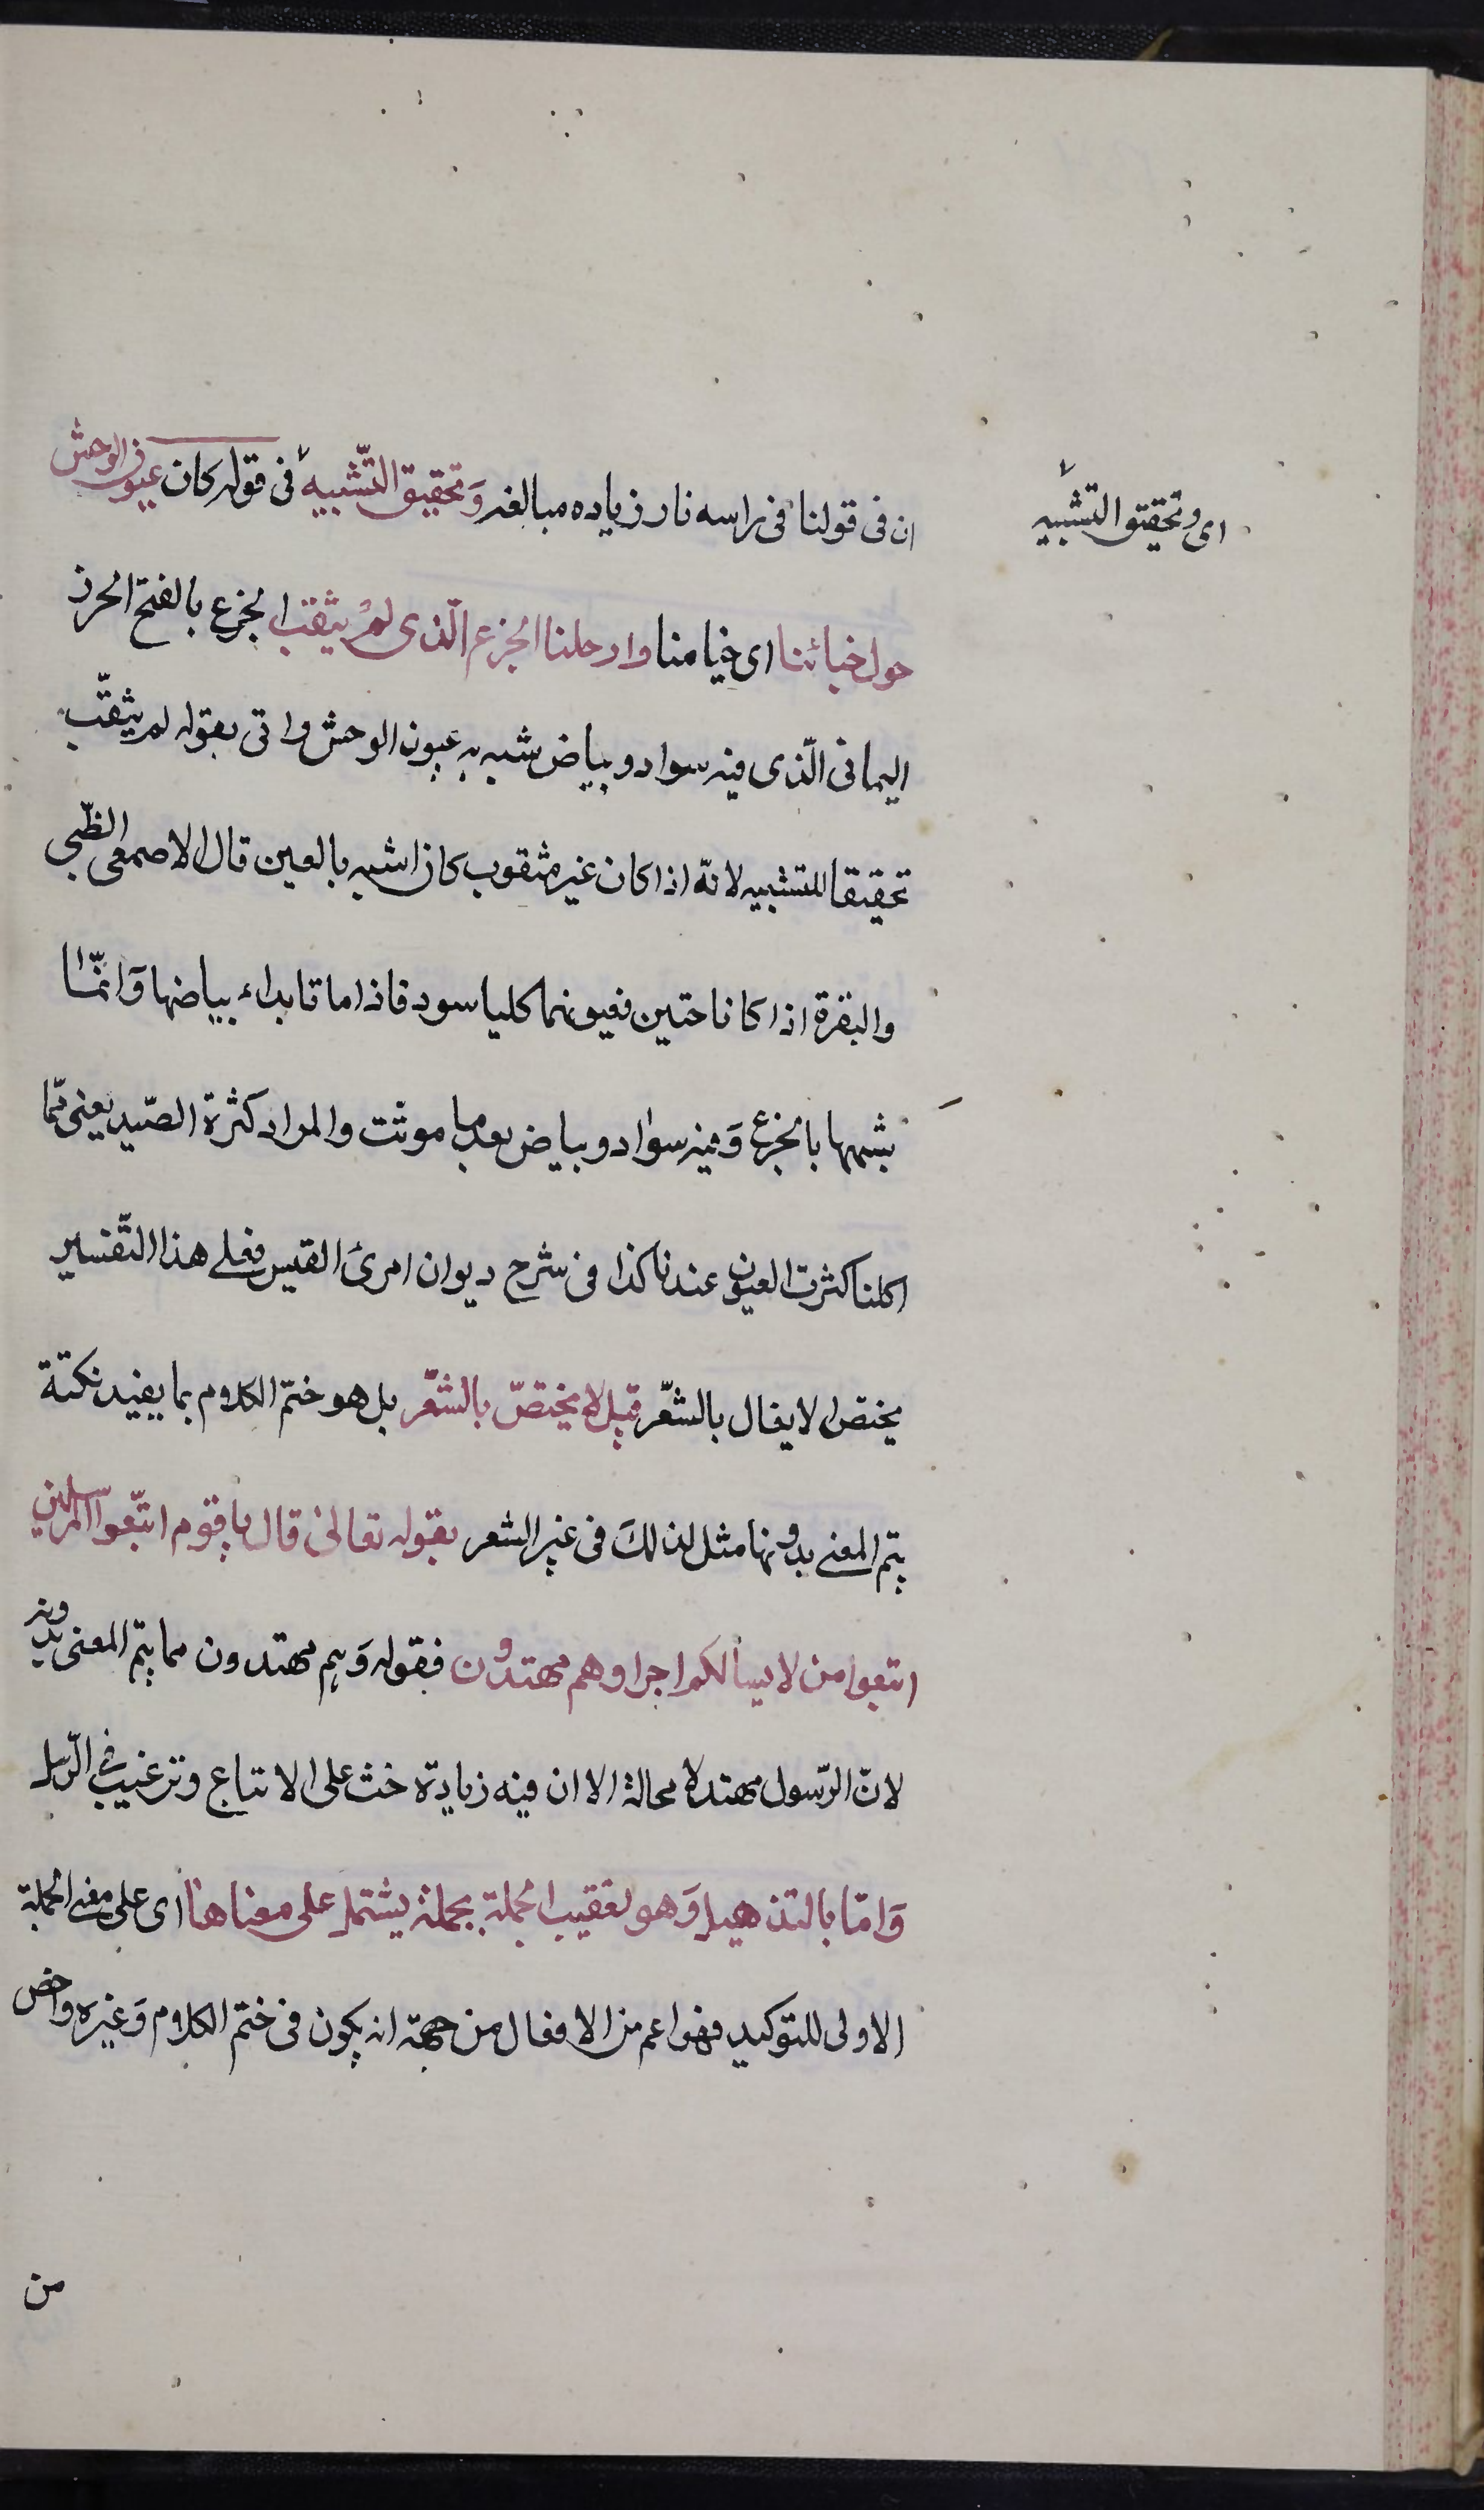 ان فى قولنا فى راسه نار زياده مبالغه وَتحقيق التّشبيه فى قوله كان عيون الوحش
اى و تحقيق التشبيه
حول خبائنا اى خيامنا وارحلنا الجزع الّذى لمْ يثقب الجزع بالفتح الخرز
اليمانى الّذى فيه سواد و بياض شبه به عيون الوحش و اتى بقوله لم يثقّب
تحقيقا للتشبيه لانّه اذا كان غير مثقوب كان اشبه بالعين قال الاصمعى الظّبى
والبقرة اذا كانا حيّين فعيونهما كلها سود فاذا ماتا بداء بياضها وَانّما
شبهها بالجزع وَفيه سواد و بياض بعد ما موتت والمراد كثرة الصّيد يعنى ممّا
اكلنا كثرت العيون عندنا كذا فى شرح ديوان امرئ القيس فعلى هذا التّفسير
يختص الايغال بالشّعر قيل لا يختصّ بالشّعر بل هو ختم الكلام بما يفيد نكتة
يتم المعنى بدونها مثل لذلكَ فى غير الشعر بقوله تعالى قال يا قوم اتّبعوا المرسلين
اتبعوا من لا يسالكم اجرا وهم مهتدون فقوله وَهم مهتدون مما يتم المعنى بدونه
لانّ الرّسول مهتد لا محالة الا ان فيه زيادة حث على الاتباع و ترغيب فى الرّسل
وَامّا بالتذهيل وَهو تعقيب الجملة بجملة يشتمل على معناها اى على معنى الجملة
الاولى للتوكيد فهو اعم من الايغال من جهة انه يكون فى ختم الكلام وَغيره واخص
من